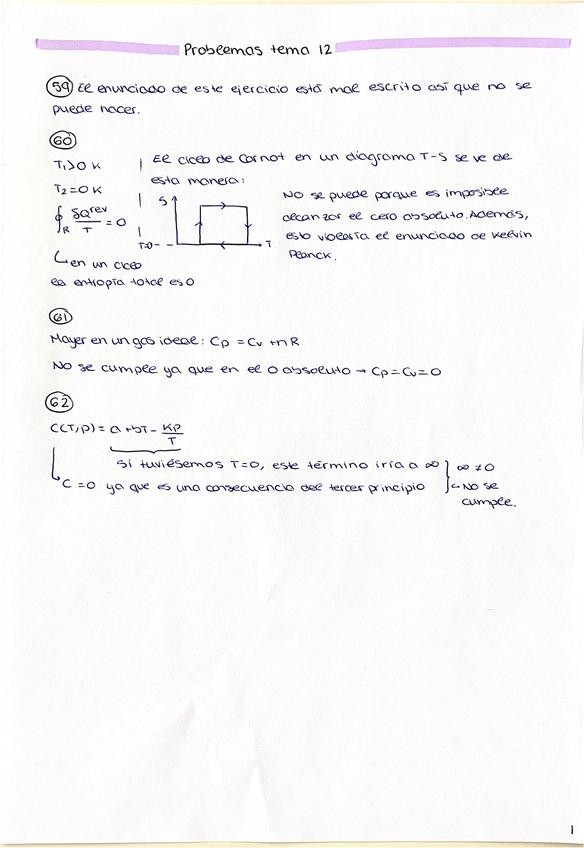 Problemas tema 12
59 El enunciado de este ejercicio está mal escrito así que no se
puede hacer.
60
T₁>0 K
T₂=0 K
∮R δQ^rev/T = 0
en un ciclo
la entropía total es 0
El ciclo de Carnot en un diagrama T-S se ve de
esta manera:
S
T=0
T
No se puede porque es imposible
alcanzar el cero absoluto. Además,
esto violaría el enunciado de Kelvin
Planck.
61
Mayer en un gas ideal: Cp = Cv + nR
No se cumple ya que en el 0 absoluto → Cp = Cv = 0
62
C(T,p) = a + bT - Kp/T
si tuviésemos T=0, este término iría a ∞
C = 0 ya que es una consecuencia del tercer principio
∞ ≠ 0
No se
cumple.
1